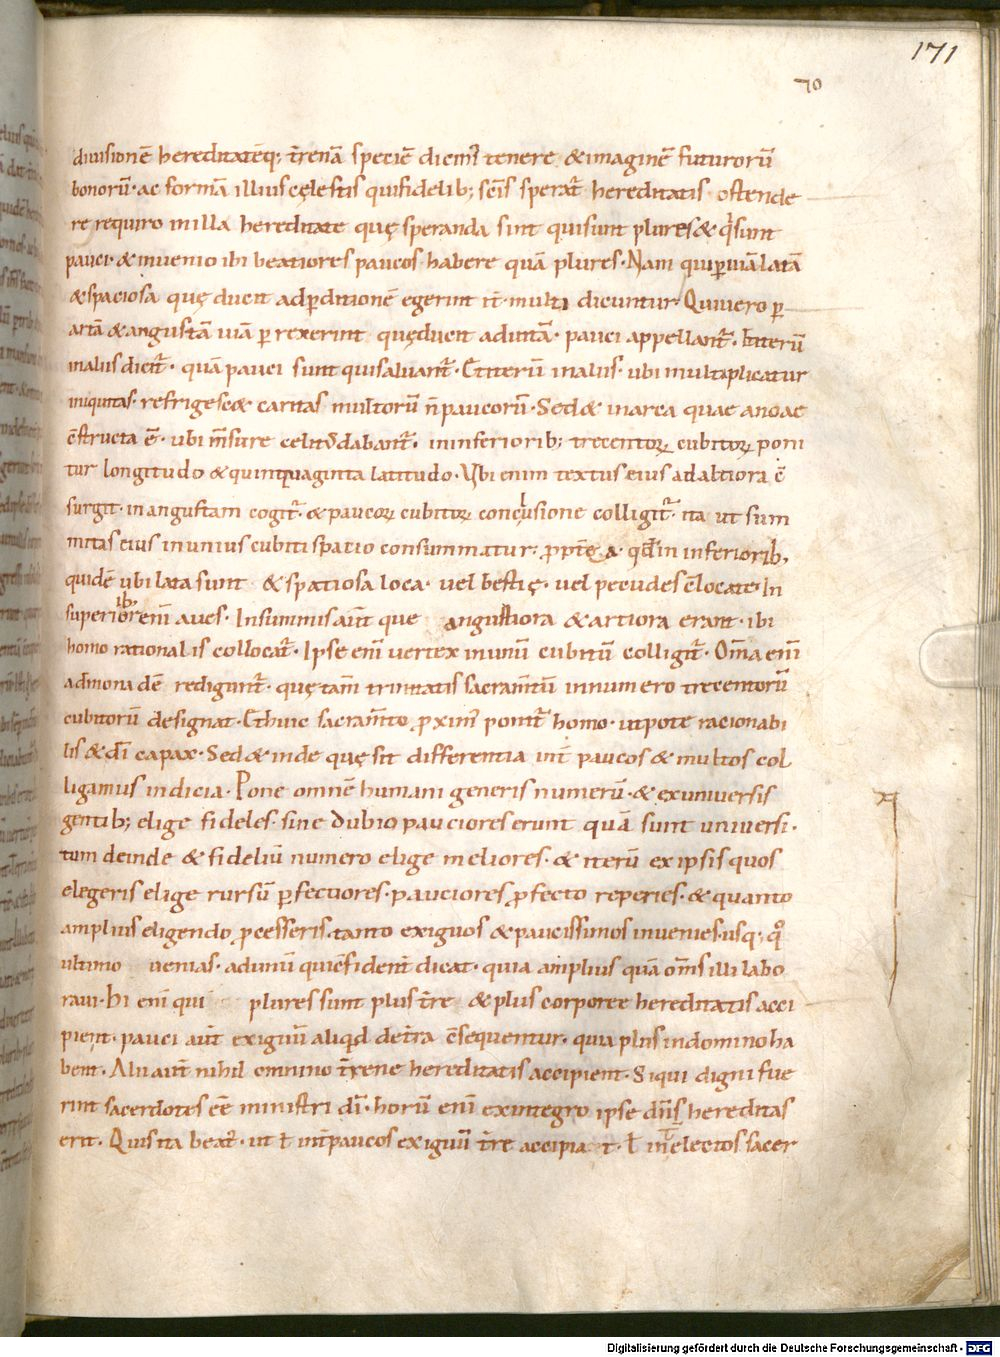 171
70
diuisionē hereditatēq; t̄renā speciē dicim᷒ tenere & imaginē futurorū
bonorū · ac formā illius cęlestis qui fidelib; sc̄is sperat̄ hereditatis · ostende
re requiro in illa hereditate quę speranda sint qui sunt plures & q̍ sunt
pauci · & inuenio ibi beatiores paucos habere quā plures · Nam qui ꝑ uiā latā
& spaciosa quę ducit ad ꝑditionē egerint it̄ · multi dicuntur Qui uero ꝑ
artā & angustā uiā ꝑrexerint quę ducit ad uitā · pauci appellant̄ · Et iterū
in alus dicit̄ · quā pauci sunt qui saluant̄ · Et iterū in alus · ubi multiplicatur
iniquitas · refrigesc& caritas multorū n̄ paucorū · Sed & in arca quae a noae
c̄structa ē · ubi m̄sure celit᷒ dabant̄ · in inferiorib; trecentoꝝ cubitoꝝ poni
tur longitudo & quinquaginta latitudo · Ubi enim textus eius ad altiora c̄
surgit · in angustam cogit̄ · & paucoꝝ cubitoꝝ conclusione colligit̄ · ita ut sum
mitas eius in unius cubiti spatio consummatur · ꝓpt̄ea · qd̄ in inferiorib;
quidē ubi lata sunt & spatiosa loca · uel bestię · uel pecudes c̄locate · In
superiorib; enī aues · In summis aūt que angustiora & artiora erant · ibi
homo rationalis collocat̄ · Ipse enī uertex in unū cubitū colligit̄ · Om̄a enī
ad monadē redigunt̄ · quę tam̄ trinitatis sacram̄tū in numero trecentorū
cubitorū designat · Et huic sacram̄to ꝓxim᷒ ponit̄ homo · utpote racionabi
lis & dī capax · Sed & inde quę sit differentia int̄ paucos & multos col
ligamus indicia · Pone omnē humani generis numerū · & ex uniuersis
gentib; elige fideles · sine dubio pauciores erunt quā sunt uniuersi ·
tum deinde & fideliū numero elige meliores · & iterū ex ipsis quos
elegeris elige rursū ꝑfectiores · pauciores ꝓfecto reperies · & quanto
amplius eligendo ꝓcesseris · tanto exiguos & paucissimos inuenies · usq; q̊
ultimo uenias · ad unū qui c̄fident̄ dicat · quia amplius quā om̄s illi labo
raui · Hi enī qui plures sunt plus t̄re & plus corporee hereditatis acci
pient · pauci aūt exiguū aliqd̍ de t̄ra c̄sequentur · quia plus in domino ha
bent · Alii aūt nihil omnino t̄rene hereditatis accipient · Si qui digni fue
rint sacerdotes eē ministri dī · horū enī ex integro ipse dn̄s hereditas
erit · Quis ita beat᷒ · ut ł int̄ paucos exiguū t̄re accipiat · ł int̄ electos sacer
Digitalisierung gefördert durch die Deutsche Forschungsgemeinschaft - DFG